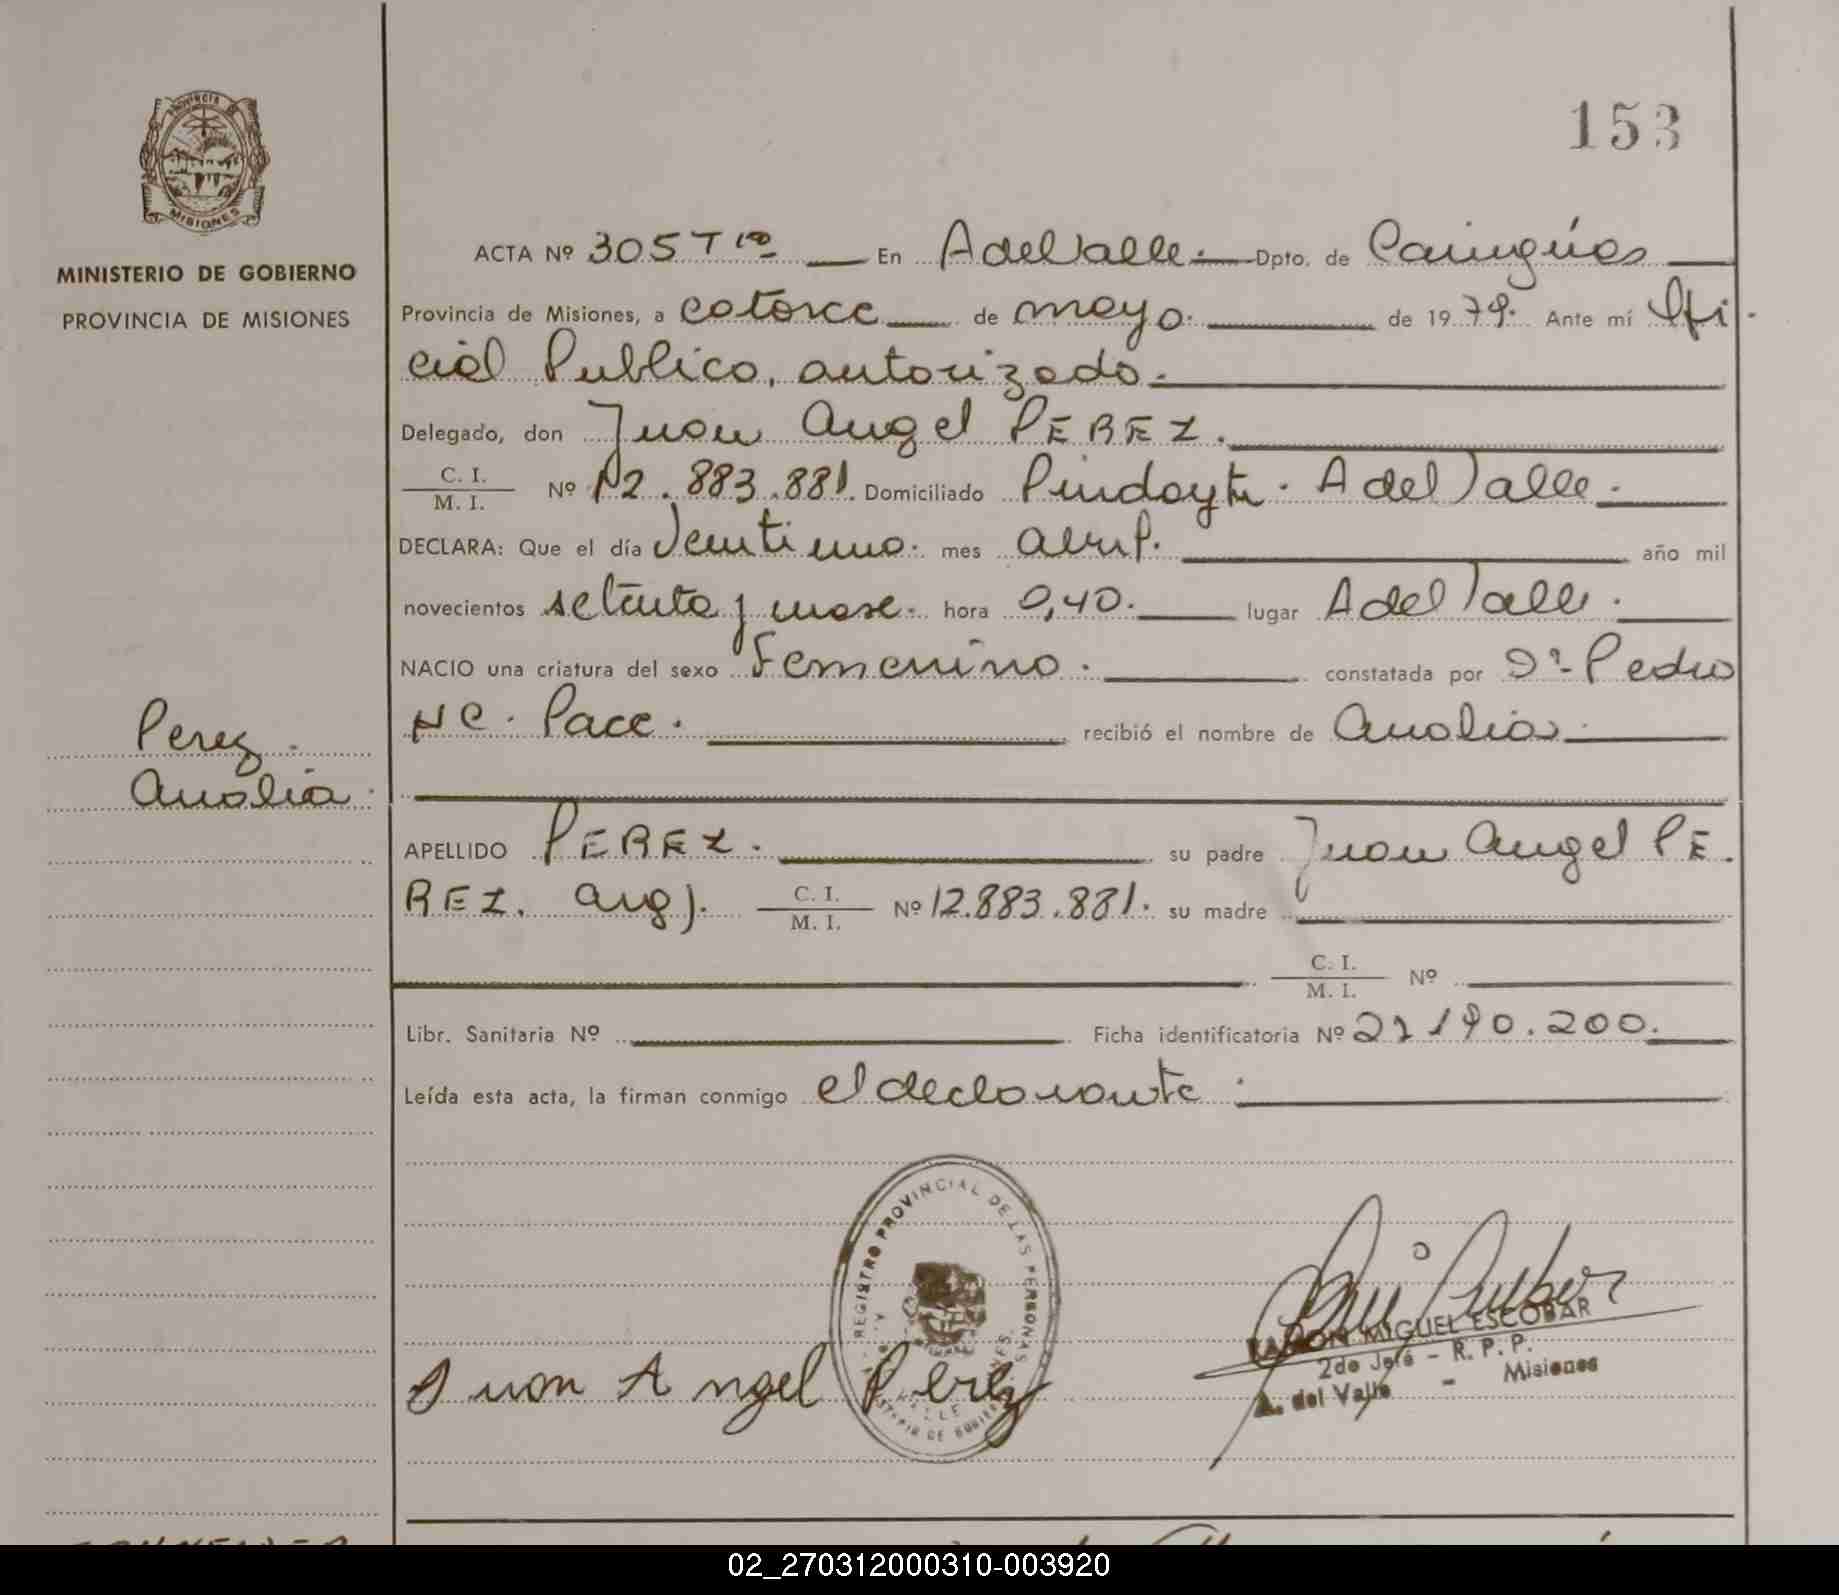 153
PROVINCIA
MISIONES
MINISTERIO DE GOBIERNO
PROVINCIA DE MISIONES
ACTA Nº 305 T1º En A del Valle.- Dpto. de Cainguás
Provincia de Misiones, a catorce de mayo. de 1979. Ante mí Ofi
cial Publico, autorizado.
Delegado, don Juan Angel PEREZ.
C. I.
M. I. Nº 12.883.881. Domiciliado Pindayty. A del Valle.
DECLARA: Que el día Veintiuno. mes abril. año mil
novecientos setenta y nueve. hora 0,40. lugar A del Valle.
NACIO una criatura del sexo Femenino. constatada por Dº- Pedro
HC. Pace. recibió el nombre de Analia
Perez.
Analia
APELLIDO PEREZ. su padre Juan Angel PE
REZ. arg). C. I. M. I. Nº 12.883.881. su madre
C. I. M. I. Nº
Libr. Sanitaria Nº Ficha identificatoria Nº 27190.200.
Leída esta acta, la firman conmigo el declarante
REGISTRO PROVINCIAL DE LAS PERSONAS
Juan Angel Perez
RAMON MIGUEL ESCOBAR
2do Jefe - R. P. P.
A. del Valle - Misiones
02_270312000310-003920